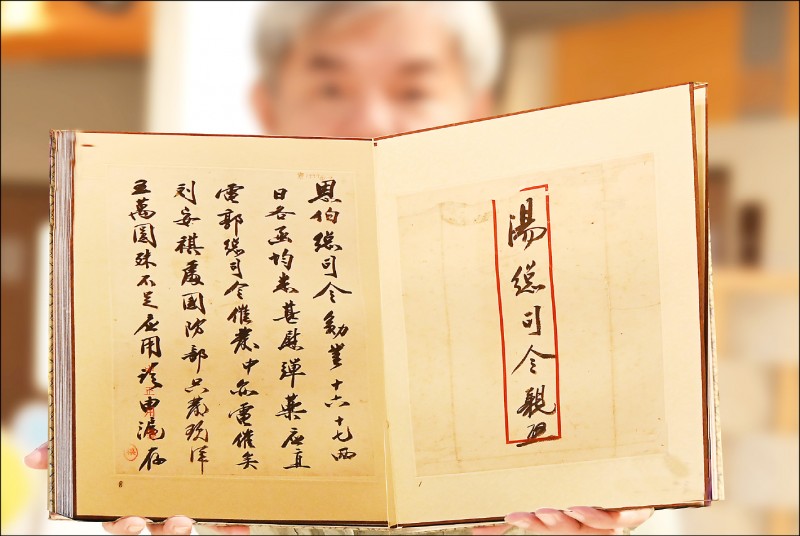 湯總司令親啟
恩伯總司令勳鑒十六十七兩
日各函均悉甚慰彈藥應直
電郭總司令催發中亦電催矣
刘安祺處國防部只發現洋
五萬圓殊不足應用請由滬存
8
1